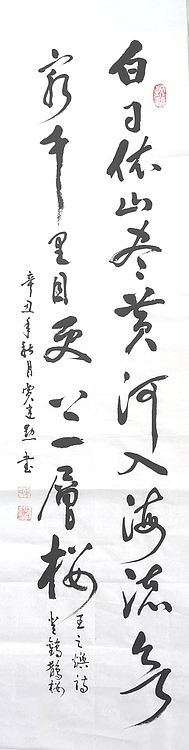 白日依山尽黄河入海流欲
穷千里目更上一層楼
王之焕诗
登鸛鵲楼
辛丑年秋月書